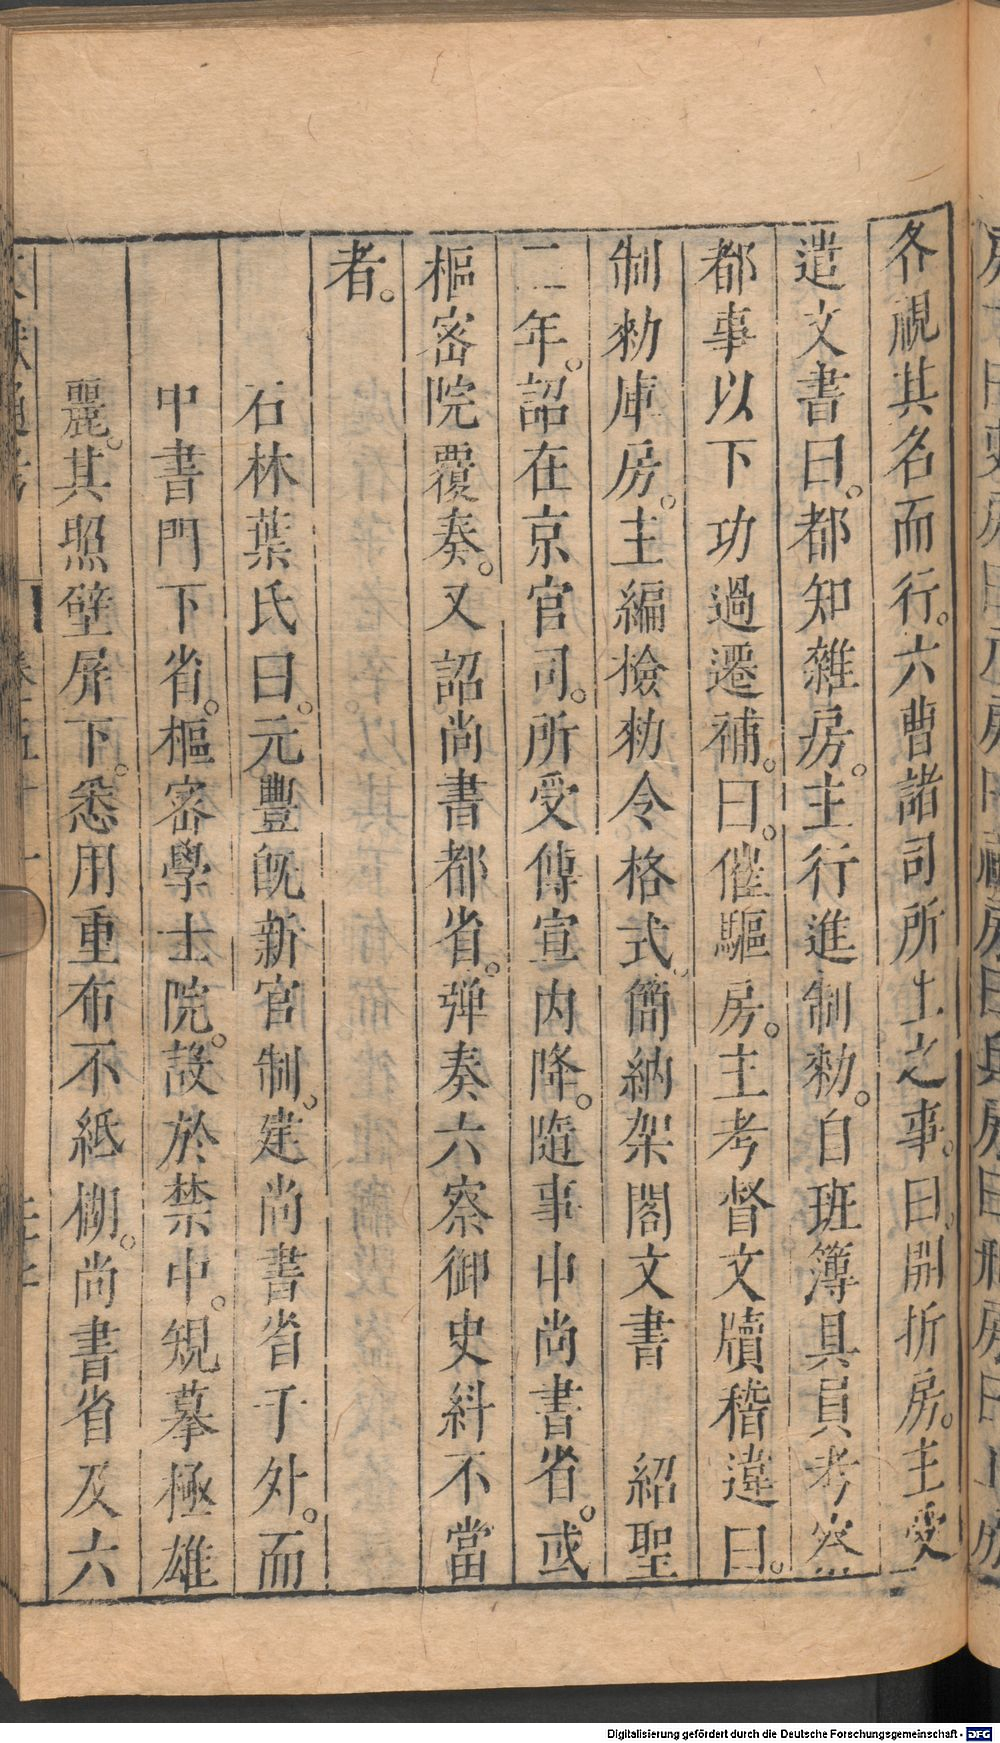 各視其名而行。六曹諸司所上之事。曰。開折房。主受
遣文書曰。都知雜房。主行進制勑。自班簿具員考察
都事以下功過遷補。曰。催驅房。主考督文牘稽違曰。
制勑庫房。主編撿勑令格式。簡納架閣文書　紹聖
二年。詔在京官司。所受傳宣内降。隨事申尚書省。或
樞密院覆奏。又詔尚書都省。彈奏六察御史糾不當
者。
石林葉氏曰。元豐旣新官制。建尚書省于外。而
中書門下省。樞密學士院。設於禁中。規摹極雄
麗。其照壁屏下。悉用重布不紙棚。尚書省及六
Digitalisierung gefördert durch die Deutsche Forschungsgemeinschaft - DFG